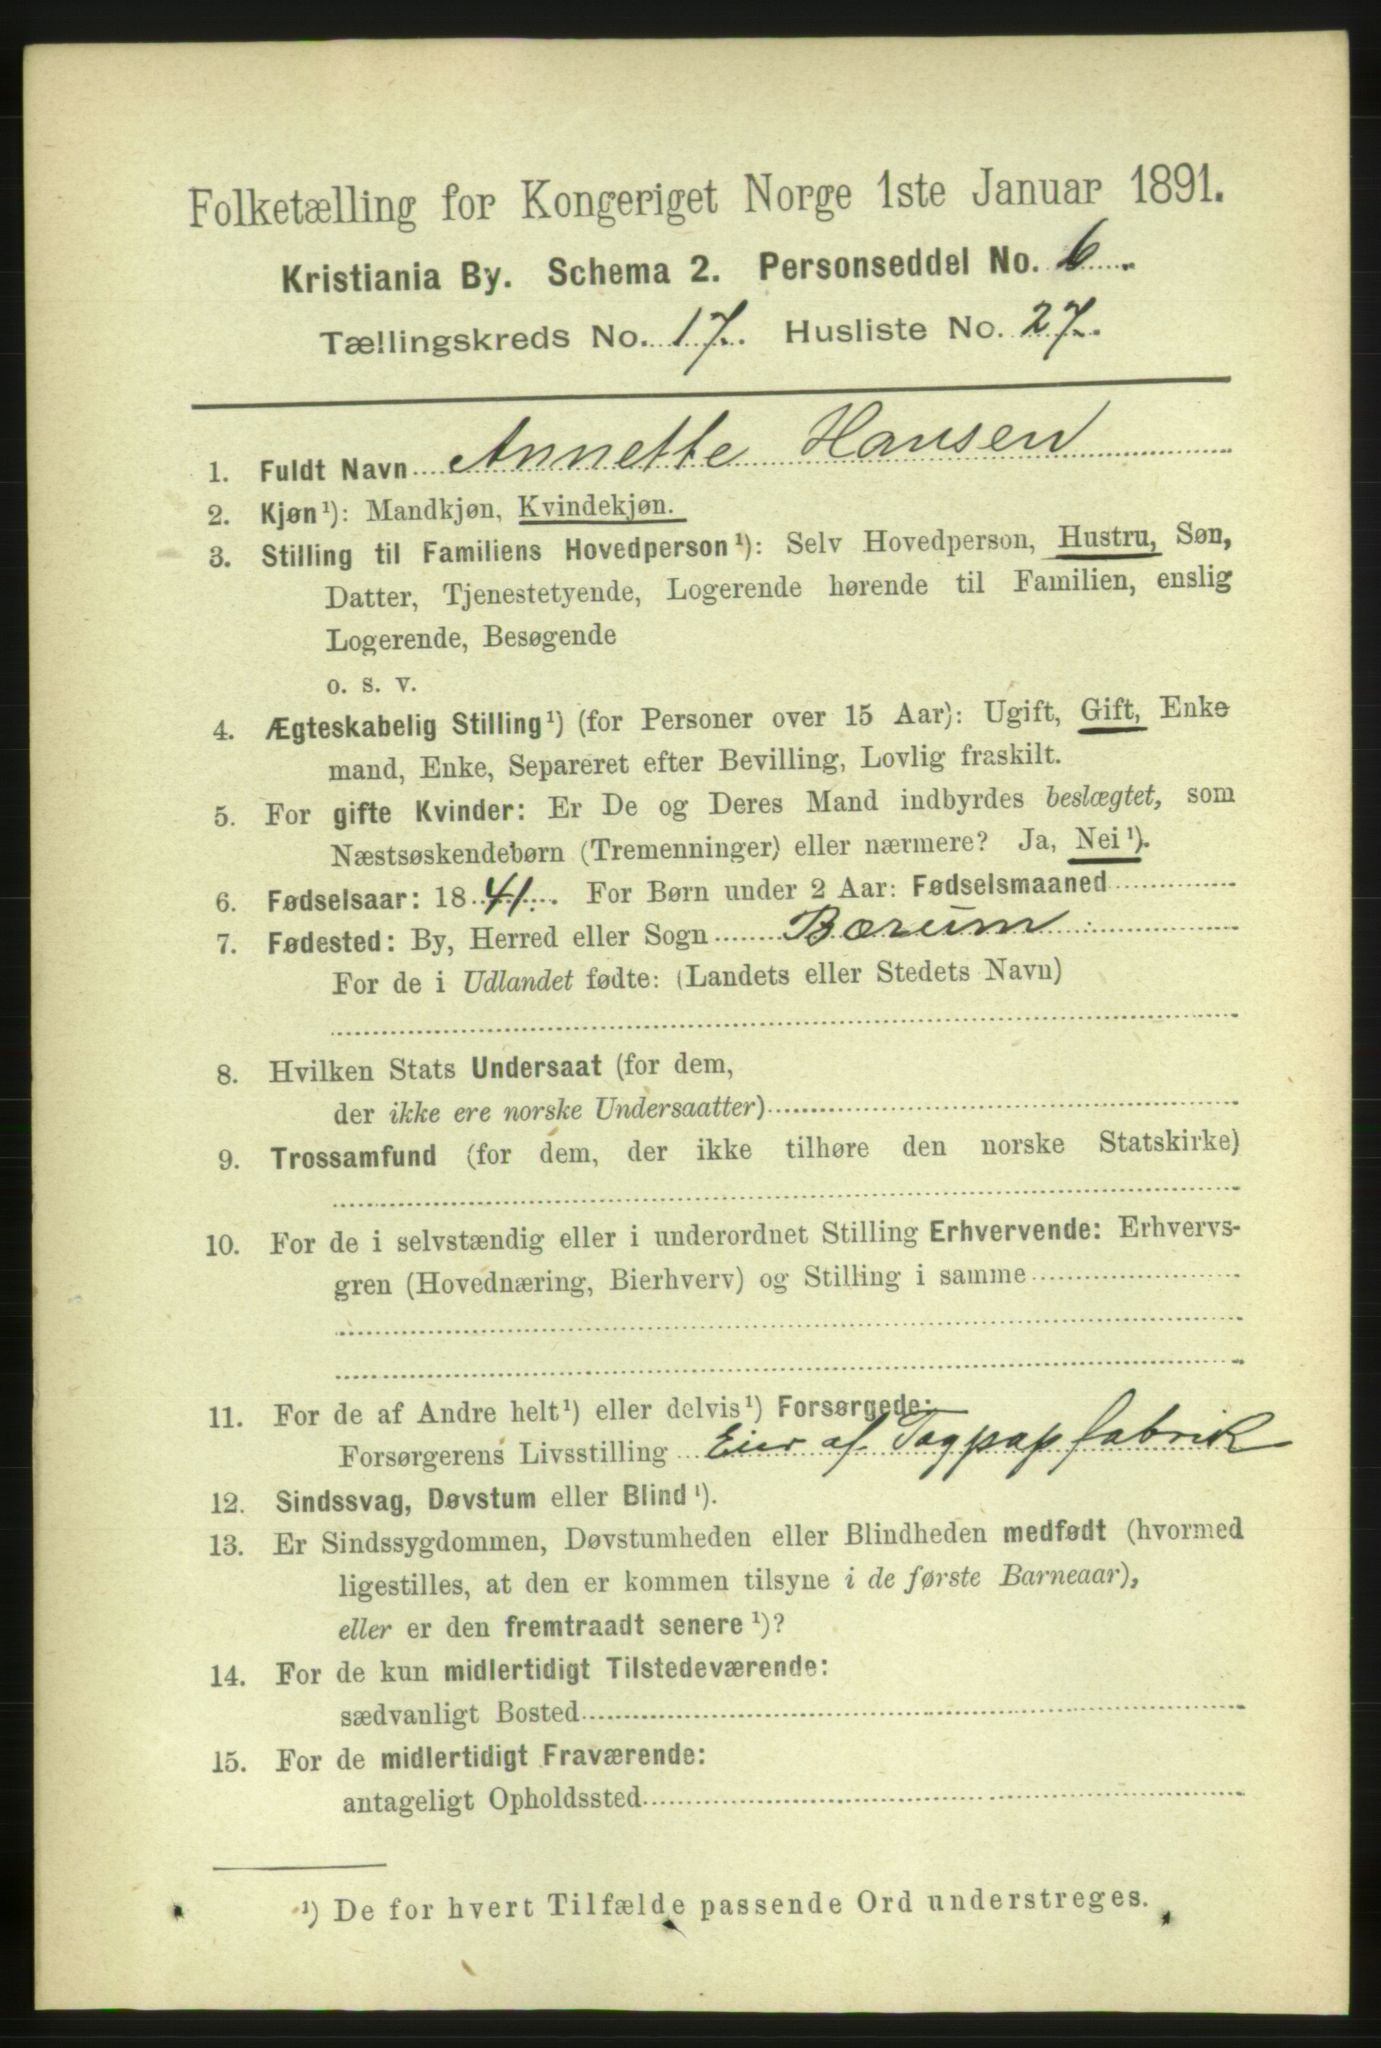 Folketælling for Kongeriget Norge 1ste Januar 1891.
Kristiania By. Schema 2. Personseddel No. 6
Tællingskreds No. 17. Husliste No. 27.
1. Fuldt Navn Annette Hansen
2. Kjøn¹): Mandkjøn, Kvindekjøn.
3. Stilling til Familiens Hovedperson¹): Selv Hovedperson, Hustru, Søn,
Datter, Tjenestetyende, Logerende hørende til Familien, enslig
Logerende, Besøgende
o. s. v.
4. Ægteskabelig Stilling¹) (for Personer over 15 Aar): Ugift, Gift, Enke
mand, Enke, Separeret efter Bevilling, Lovlig fraskilt.
5. For gifte Kvinder: Er De og Deres Mand indbyrdes beslægtet, som
Næstsøskendebørn (Tremenninger) eller nærmere? Ja, Nei¹).
6. Fødselsaar: 1841. For Børn under 2 Aar: Fødselsmaaned
7. Fødested: By, Herred eller Sogn Bærum
For de i Udlandet fødte: (Landets eller Stedets Navn)
8. Hvilken Stats Undersaat (for dem,
der ikke ere norske Undersaatter)
9. Trossamfund (for dem, der ikke tilhøre den norske Statskirke)
10. For de i selvstændig eller i underordnet Stilling Erhvervende: Erhvervs-
gren (Hovednæring, Bierhverv) og Stilling i samme
11. For de af Andre helt¹) eller delvis¹) Forsørgede:
Forsørgerens Livsstilling Eier af Tagpapfabrik
12. Sindssvag, Døvstum eller Blind¹).
13. Er Sindssygdommen, Døvstumheden eller Blindheden medfødt (hvormed
ligestilles, at den er kommen tilsyne i de første Barneaar),
eller er den fremtraadt senere¹)?
14. For de kun midlertidigt Tilstedeværende:
sædvanligt Bosted
15. For de midlertidigt Fraværende:
antageligt Opholdssted
¹) De for hvert Tilfælde passende Ord understreges.